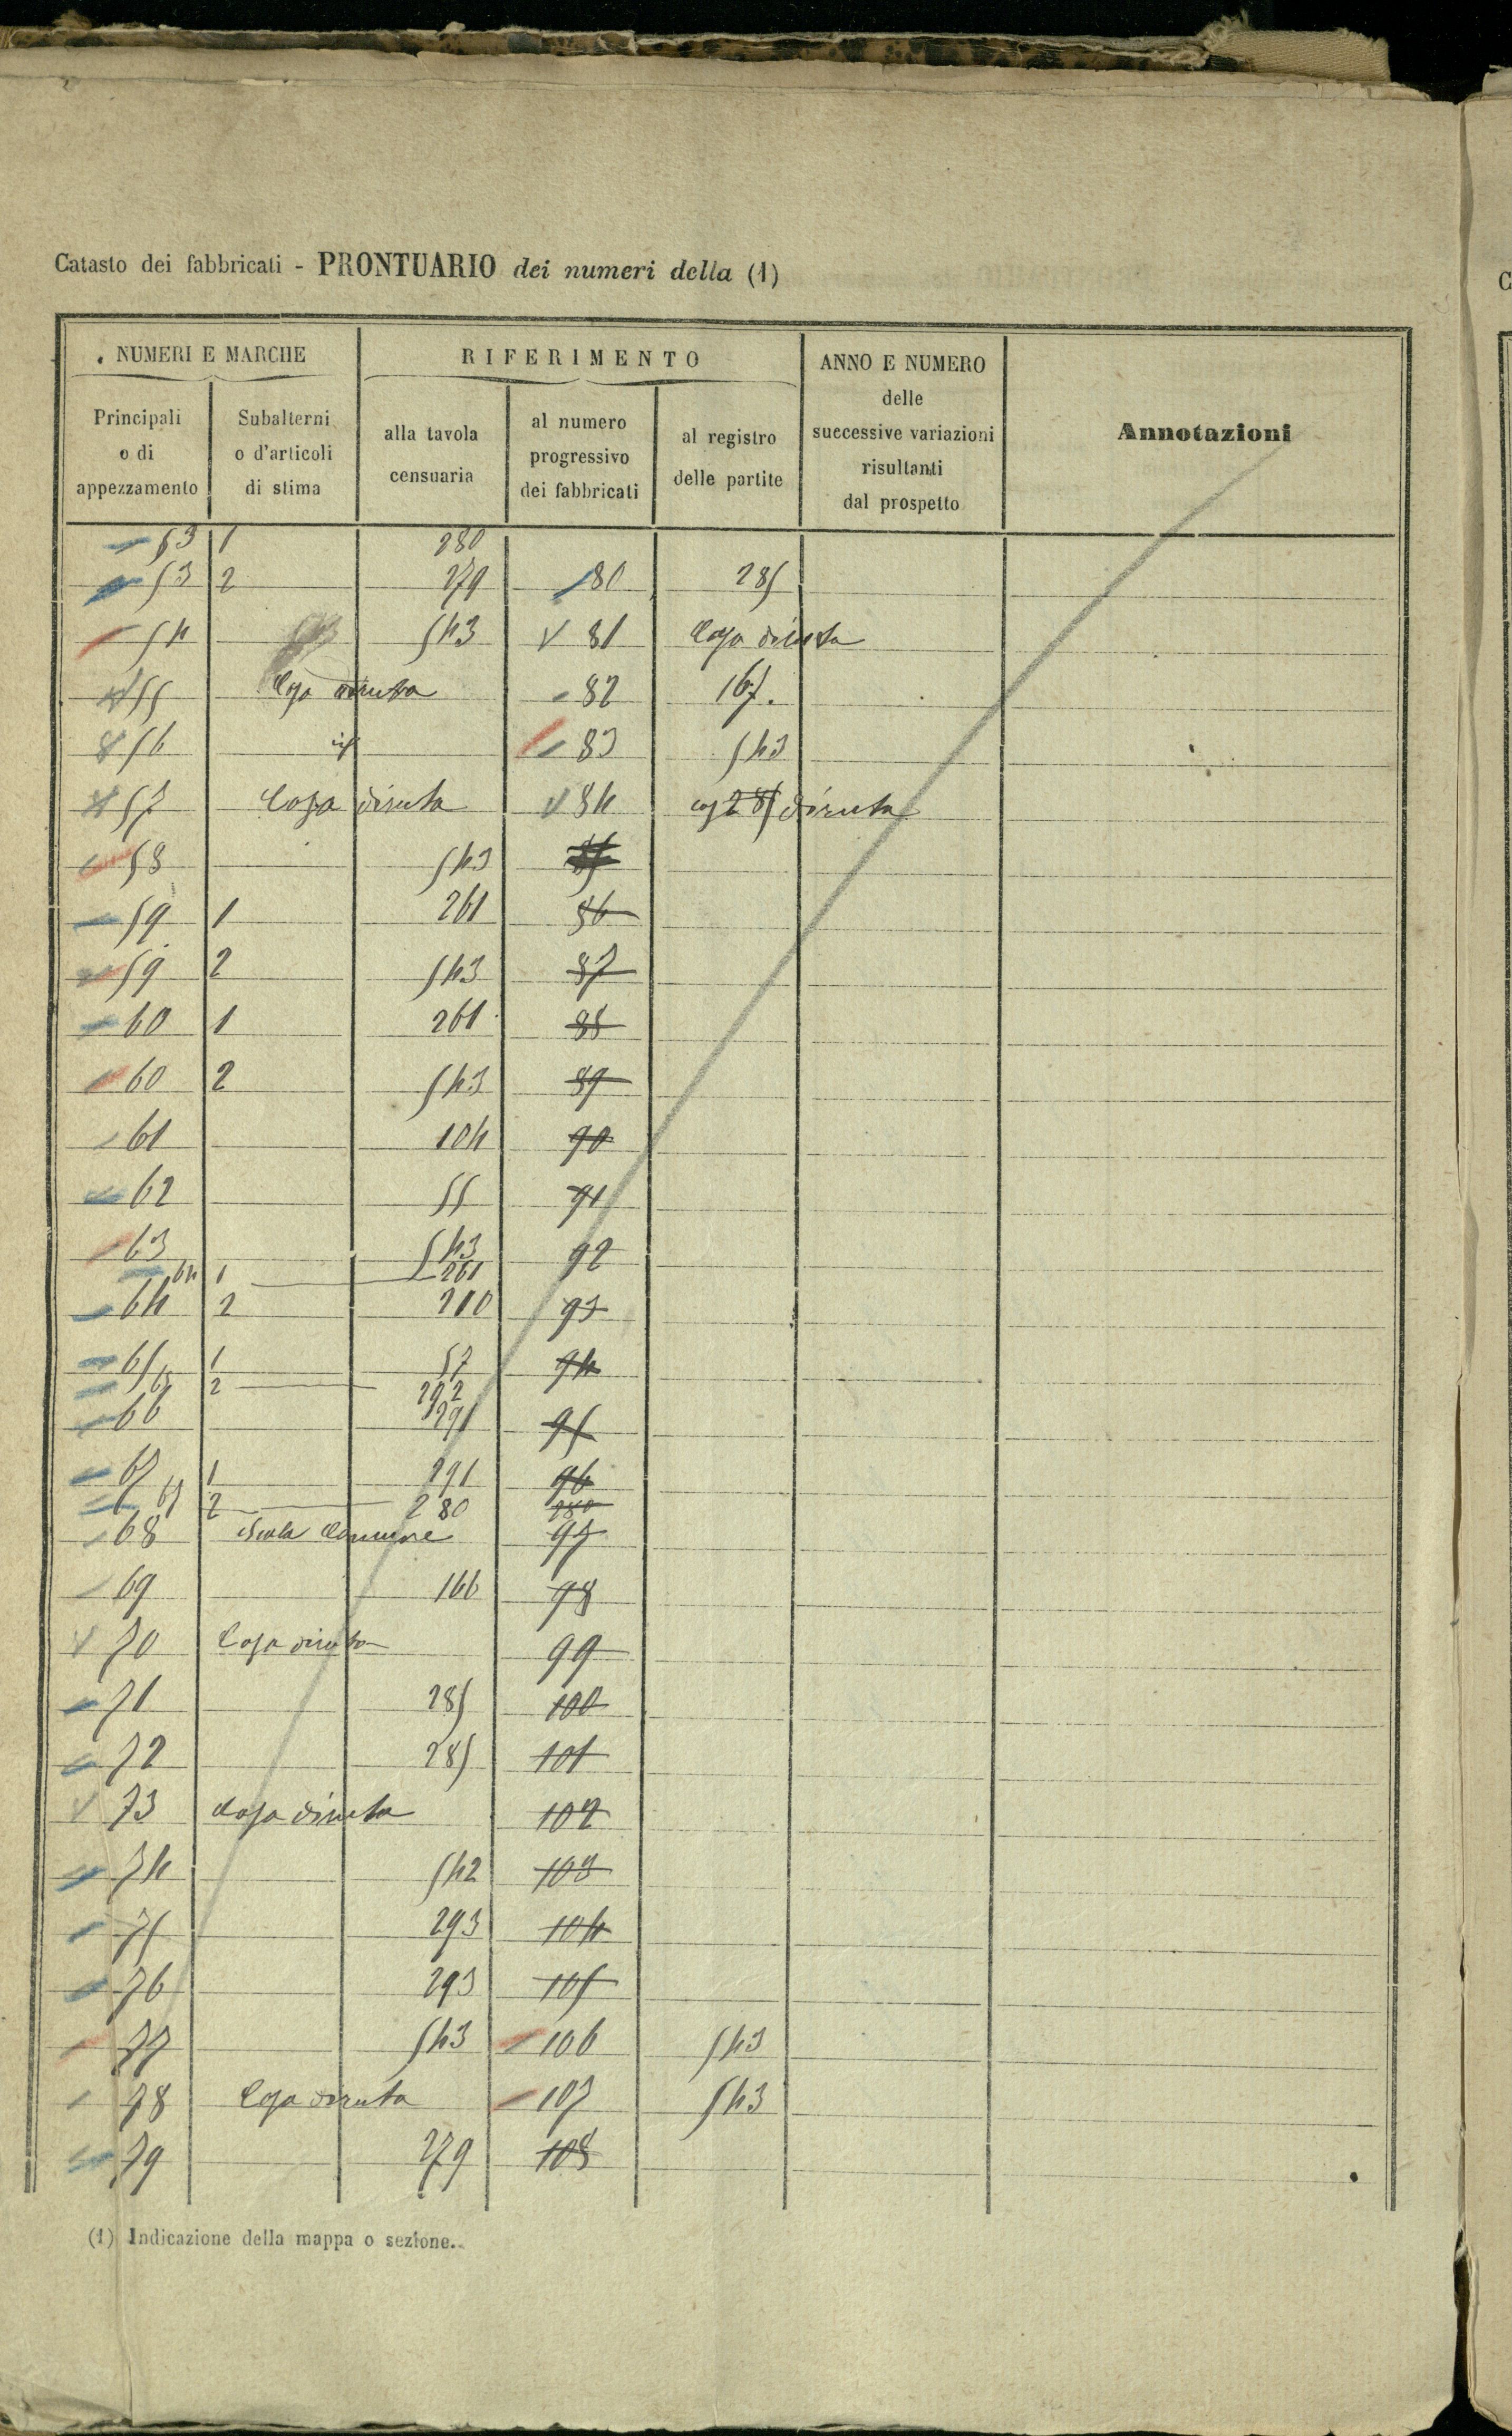 Catasto dei fabbricati - PRONTUARIO dei numeri della (1)
NUMERI E MARCHE RIFERIMENTO ANNO E NUMERO delle successive variazioni risultanti dal prospetto Annotazioni
Principali o di appezzamento Subalterni o d'articoli di stima alla tavola censuaria al numero progressivo dei fabbricati al registro delle partite
53 1 280
53 2 279 80 285
54 543 81 Casa diruta
55 Casa diruta 82 167.
56 id 83 543
57 Casa diruta 84 cas 285 diruta
58 543 85
59 1 261 86
59 2 543 87
60 1 261 88
60 2 543 89
61 104 90
62 55 91
63 543 92
64 1 261
64 2 210 93
65 1 57 94
65 2 292
66 291 95
67 1 291 96
67 2 280 280
68 Scala Comune 97
69 166 98
70 Casa diruta 99
71 285 100
72 285 101
73 Casa diruta 102
74 542 103
75 293 104
76 293 105
77 543 106 543
78 Casa diruta 107 543
79 279 108
(1) Indicazione della mappa o sezione.
C